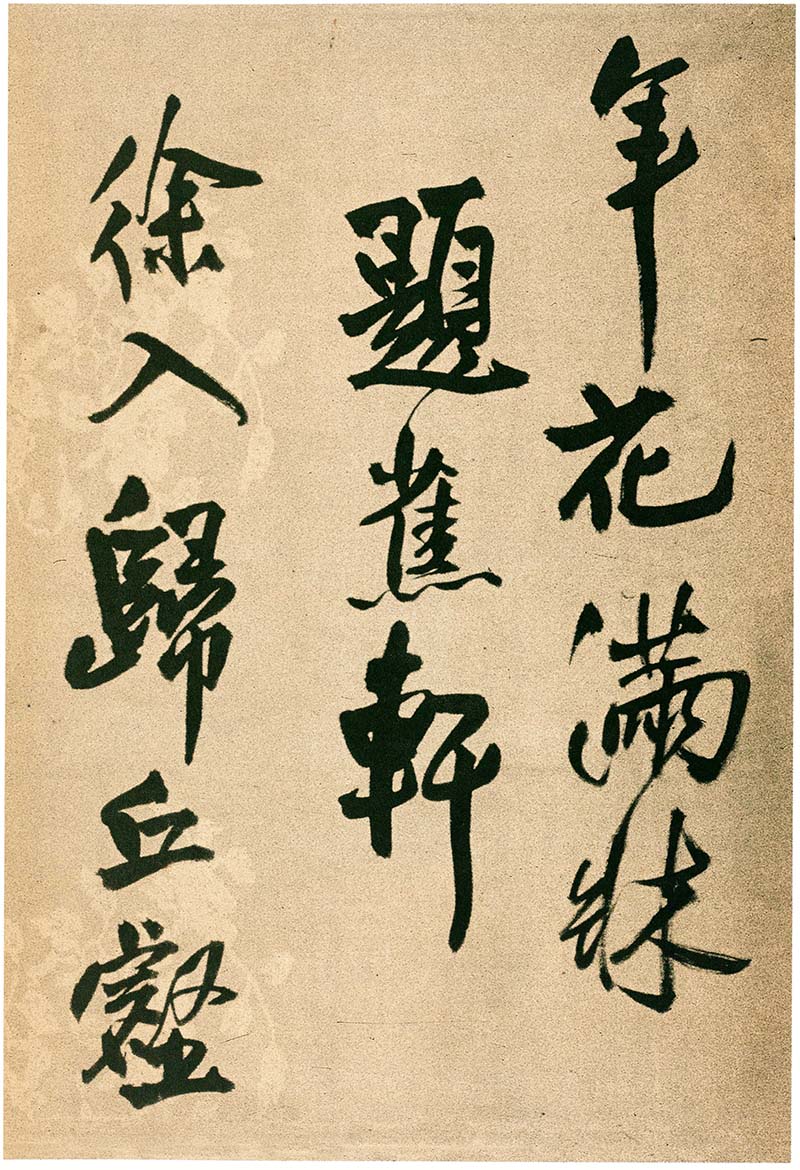 年花滿牀
題蕉軒
徐入歸丘壑